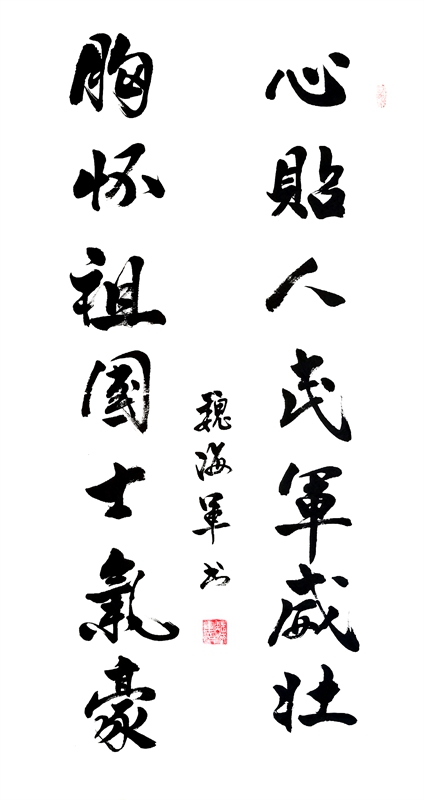 心貼人民軍威壯
胸怀祖國士氣豪
魏海军书